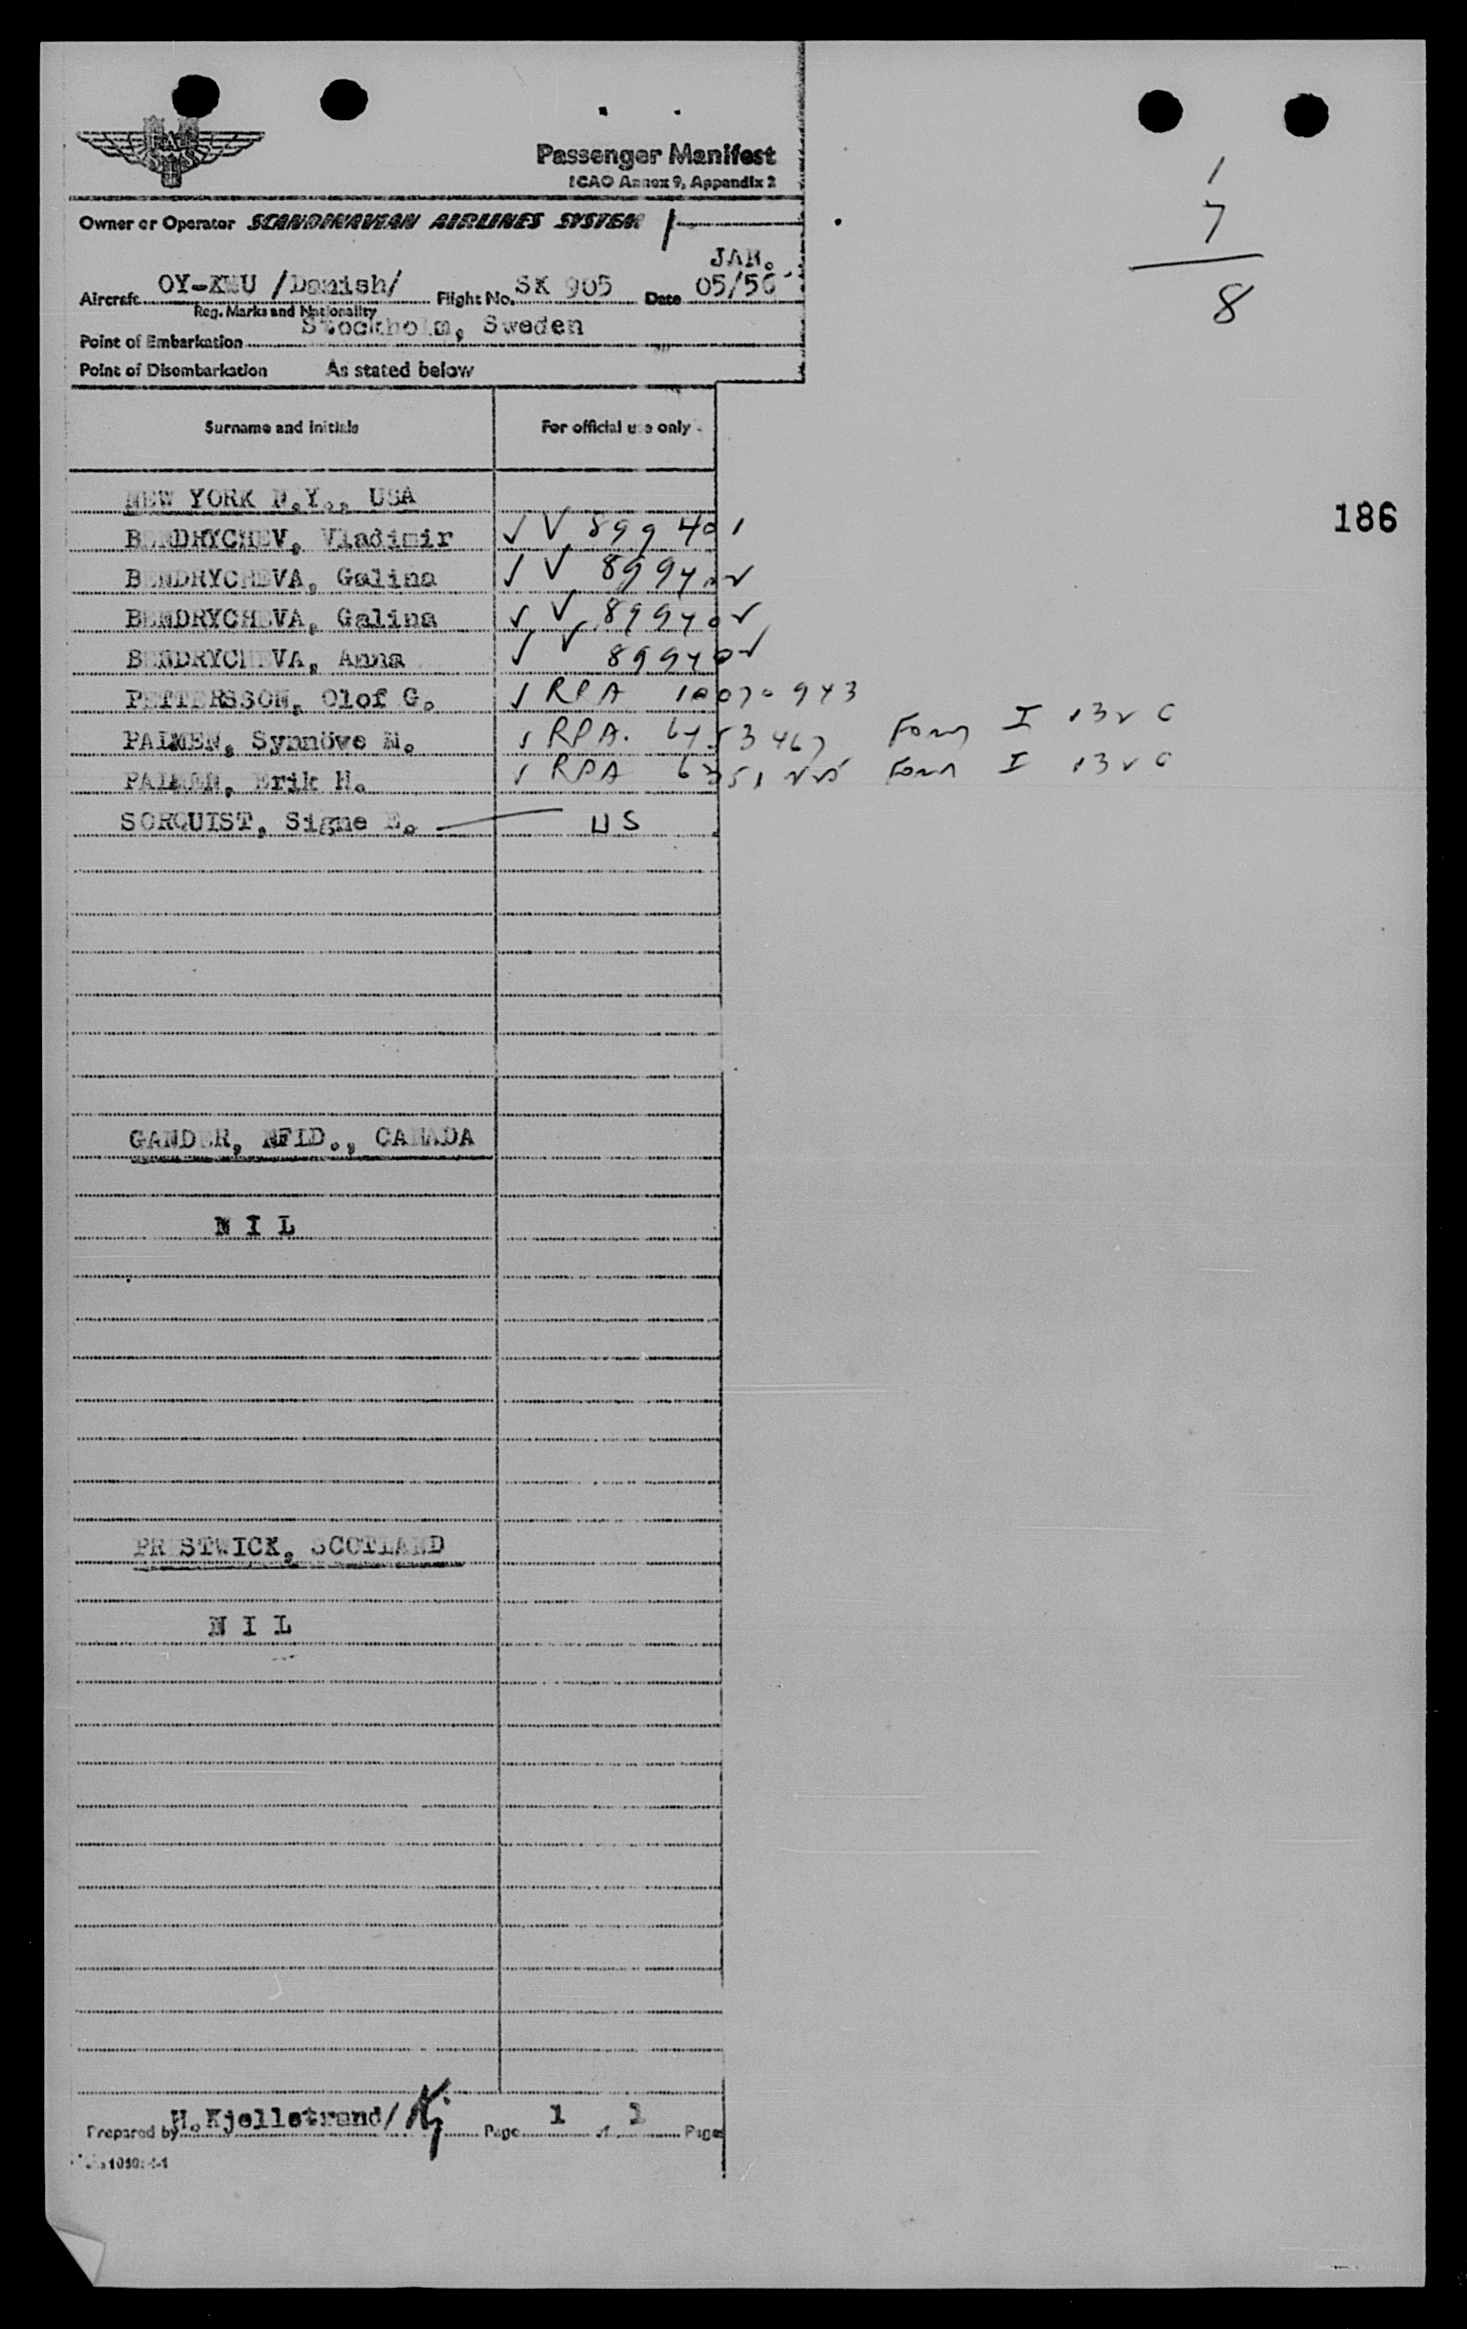 Passenger Manifest
ICAO Annex 9, Appendix 2
Owner or Operator SCANDINAVIAN AIRLINES SYSTEM
JAN.
Aircraft /Danish/ Flight No. SK 905 Date 05/56
Reg. Marks and Nationality
Point of Embarkation Stockholm, Sweden
Point of Disembarkation As stated below
1
7
8
Surname and initials For official use only
NEW YORK N.Y., USA
186
BENDRYCHEV, Vladimir √ V 899401
BENDRYCHEVA, Galina √ V
BENDRYCHEVA, Galina √ V
BENDRYCHEVA, Anna √ V
PETTERSSON, Olof G. √ RPA 10070943
PALMEN, Synnöve M. √ RPA. Form I
PALMEN, Erik H. √ RPA Form I
SORQUIST, Signe E. — US
GANDER, NFLD., CANADA
N I L
PRESTWICK, SCOTLAND
N I L
Prepared by H.Kjellstrand/Kj Page 1 of 1 Pages